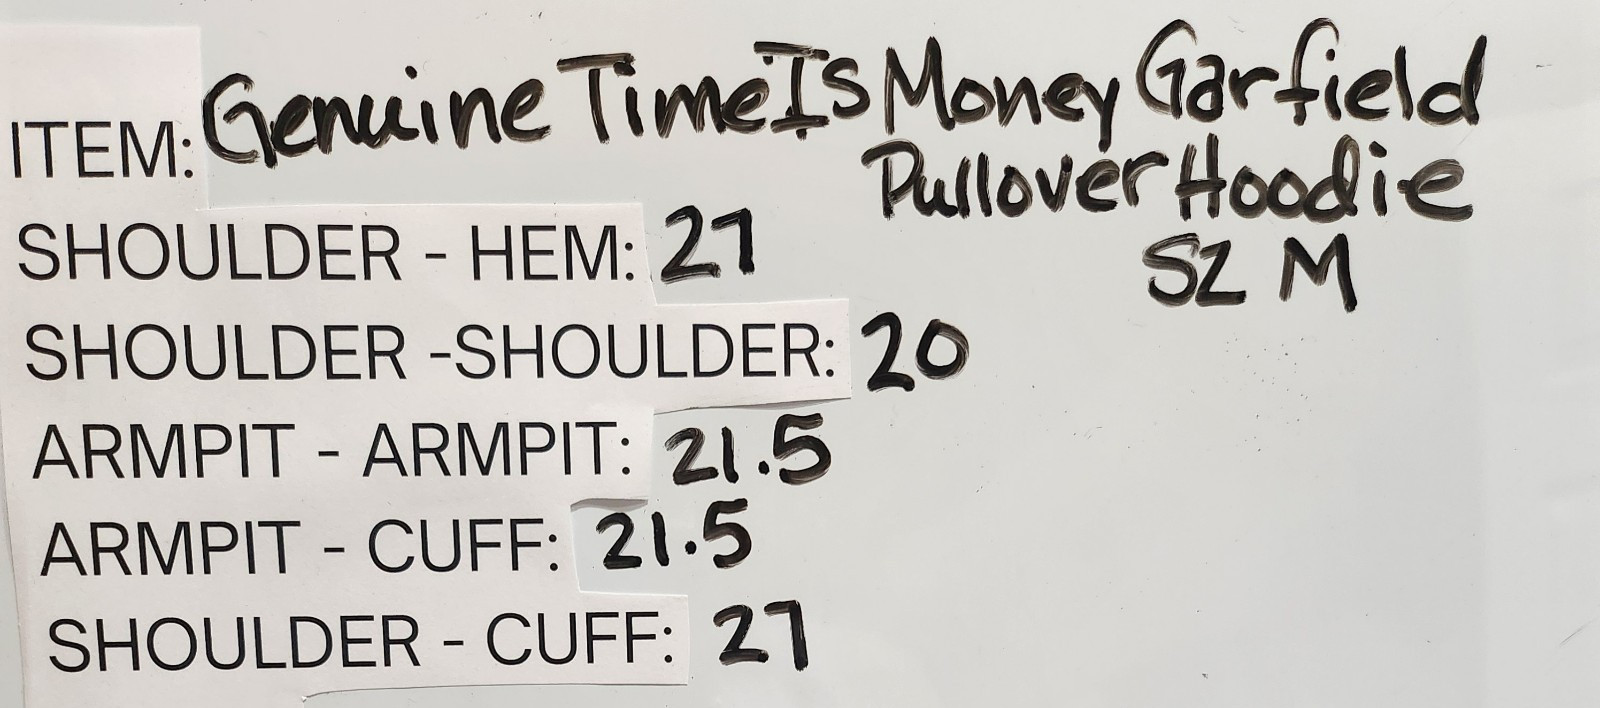 ITEM: Genuine Time Is Money Garfield
Pullover Hoodie
SZ M
SHOULDER - HEM: 27
SHOULDER -SHOULDER: 20
ARMPIT - ARMPIT: 21.5
ARMPIT - CUFF: 21.5
SHOULDER - CUFF: 27